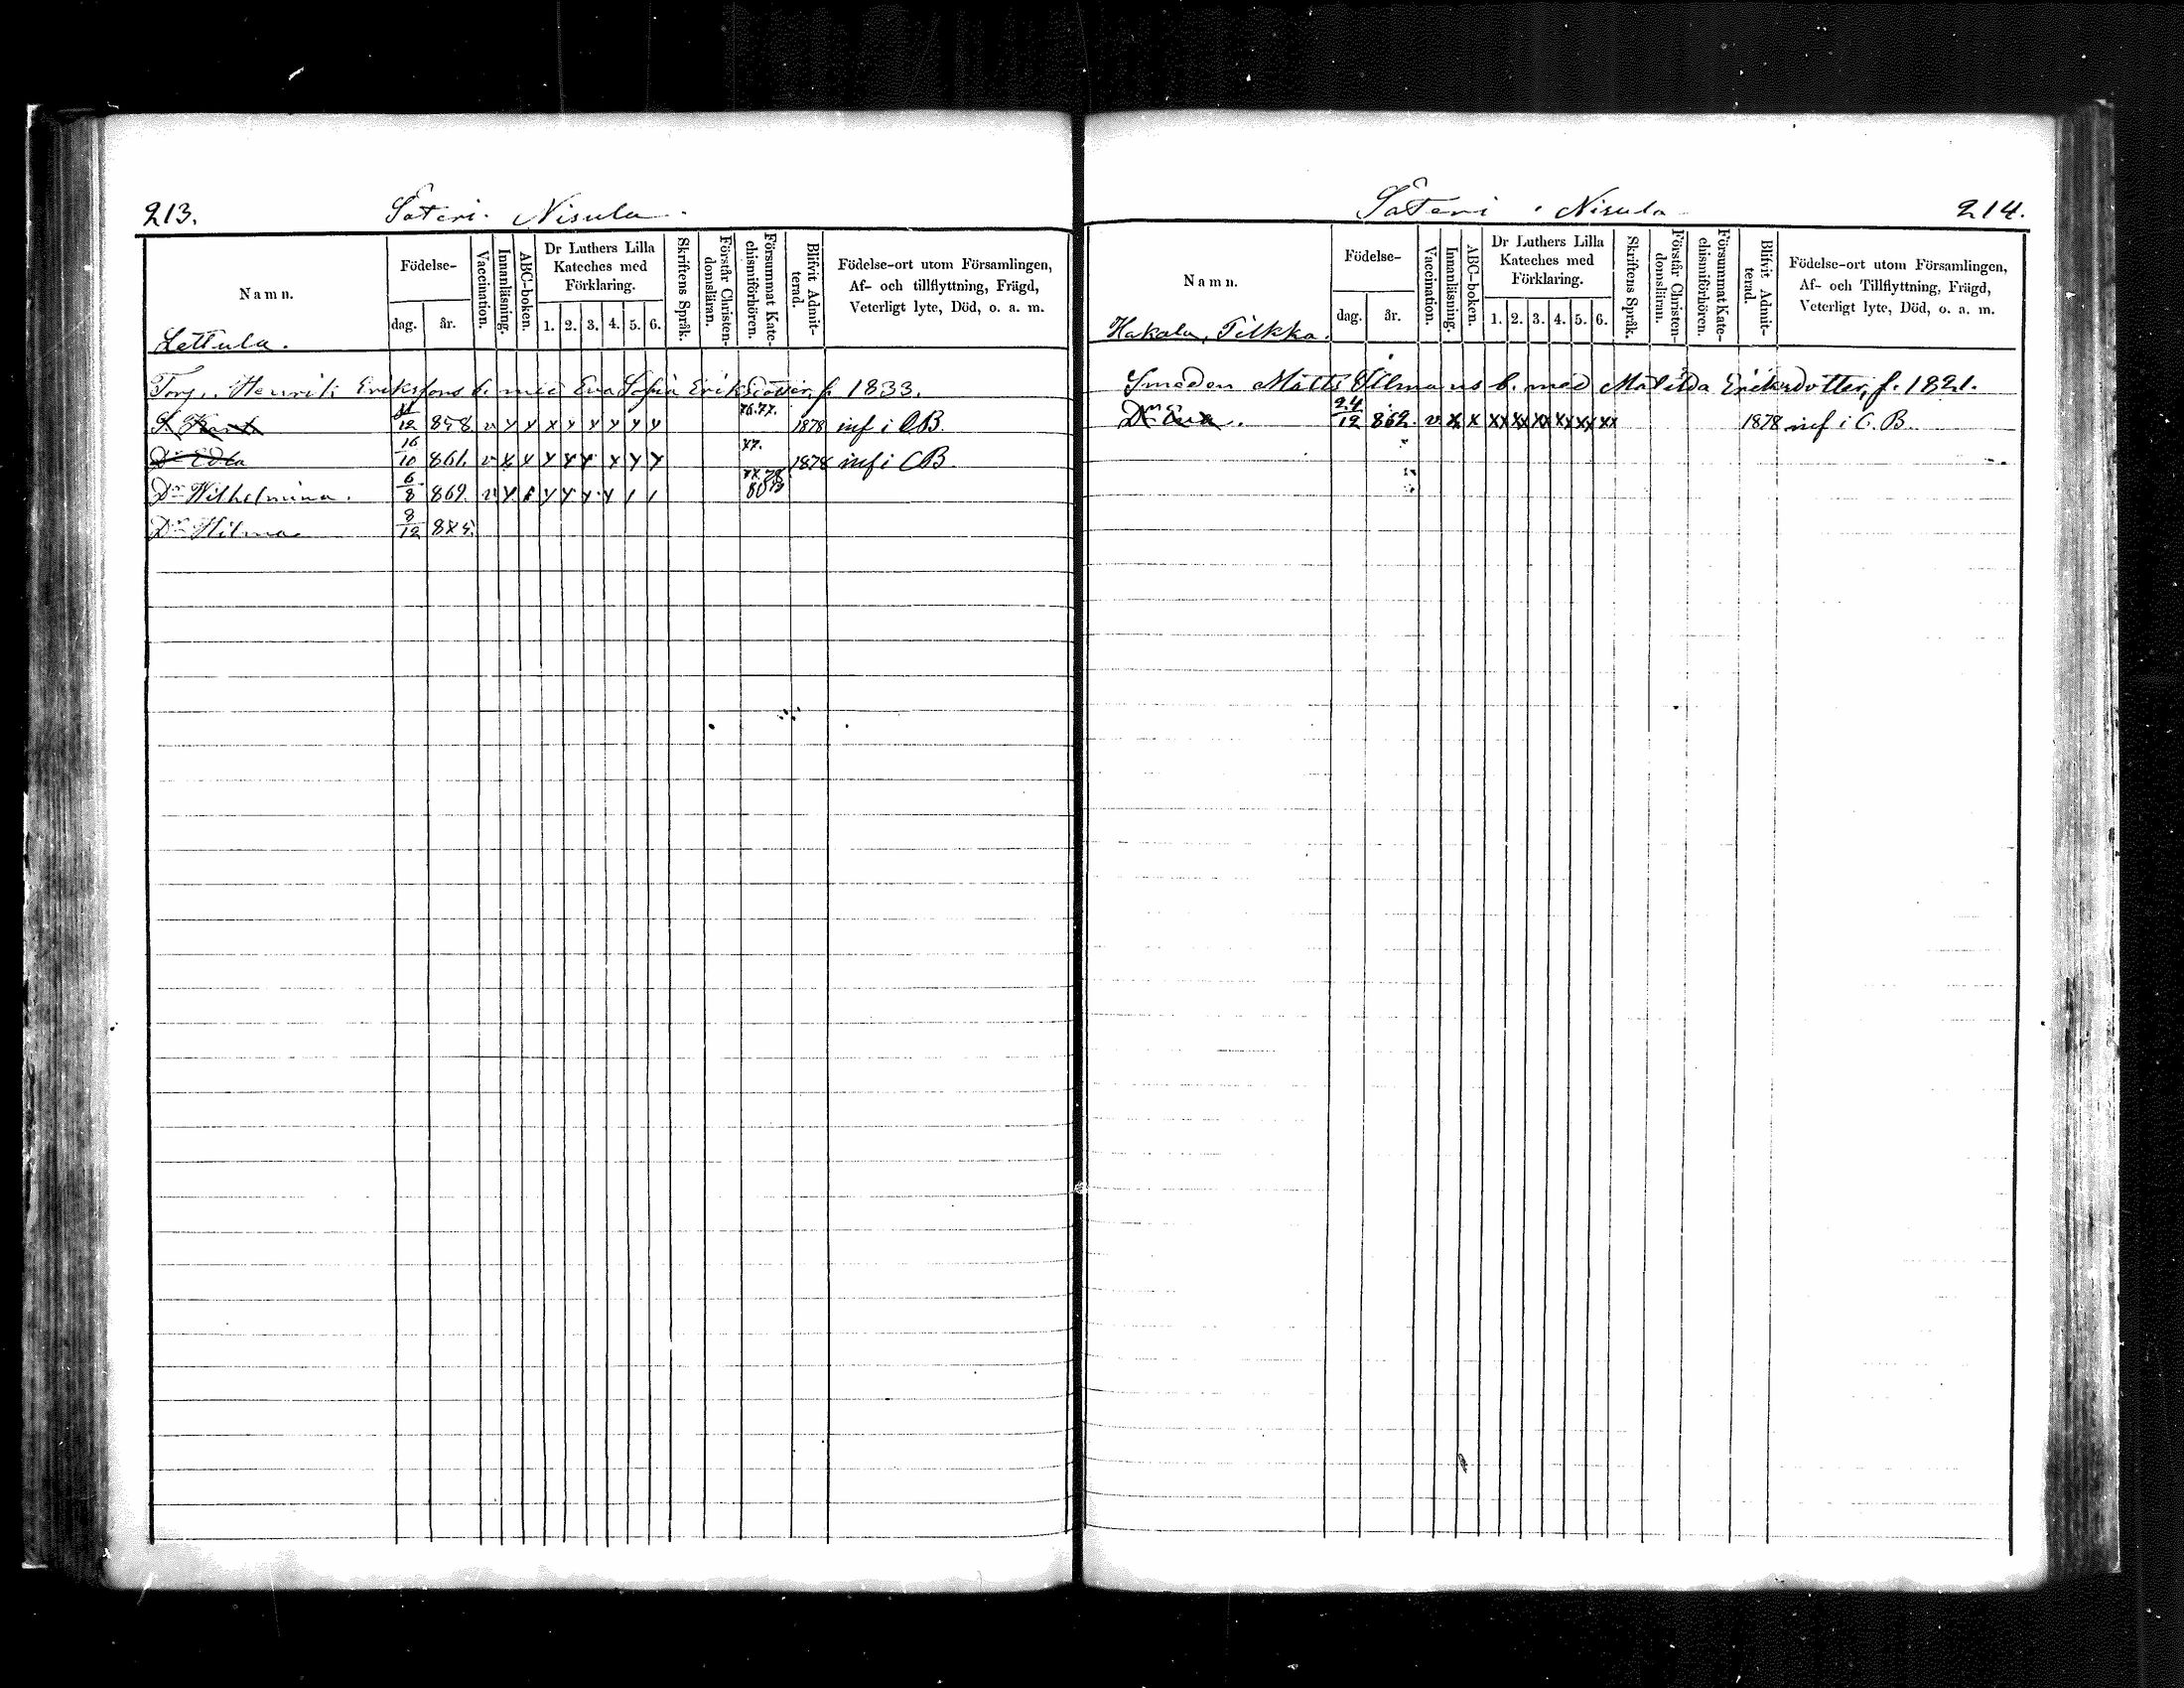 213. Säteri. Nisula.
Namn.
Födelse-
dag. år.
Vaccination.
Innanläsning.
ABC-boken.
Dr Luthers Lilla Kateches med Förklaring.
1. 2. 3. 4. 5. 6.
Skriftens Språk.
Förstår Christen-domsläran.
Försummat Kate-chismiförhören.
Blifvit Admit-terad.
Födelse-ort utom Församlingen,
Af- och tillflyttning, Frägd,
Veterligt lyte, Död, o. a. m.
Lettula.
Torp. Henrik Erikssons b. med Eva Sofia Eriksdotter, f. 1833.
12 858 v x x x x x x x x 76.77. 1878 inf i CB.
Dr Edla 16/10 861. v x x x x x x x x 77. 1878 inf i CB
Dr Wilhelmina. 6/8 869. v x x x x x x / / 77.78 80
Dr Hilma 8/12 875.
Säteri. Nisula 214.
Namn.
Födelse-
dag. år.
Vaccination.
Innanläsning.
ABC-boken.
Dr Luthers Lilla Kateches med Förklaring.
1. 2. 3. 4. 5. 6.
Skriftens Språk.
Förstår Christen-domsläran.
Försummat Kate-chismiförhören.
Blifvit Admit-terad.
Födelse-ort utom Församlingen,
Af- och Tillflyttning, Frägd,
Veterligt lyte, Död, o. a. m.
Hakala, Tilkka.
Smeden Matts Ullmans b. med Matilda Eriksdotter, f. 1821.
Dr Eva. 24/12 862. v x x xx xx xx xx xx xx 1878 inf i C.B.